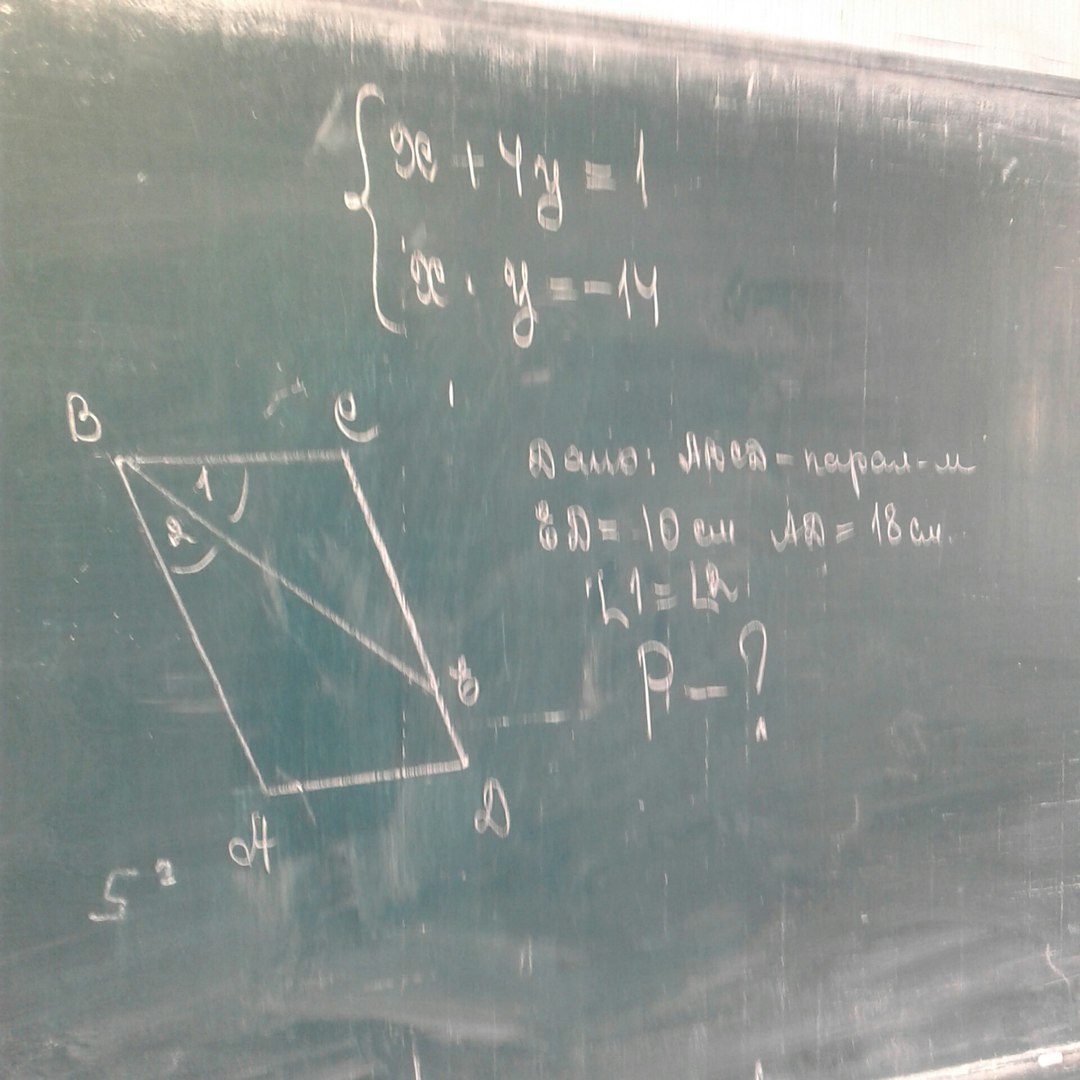 x + 4y = 1
x · y = -14
B
C
1
2
E
A
D
5²
Дано: ABCD - парал-м
ED = 10 см AD = 18 см.
∠1 = ∠2
P - ?